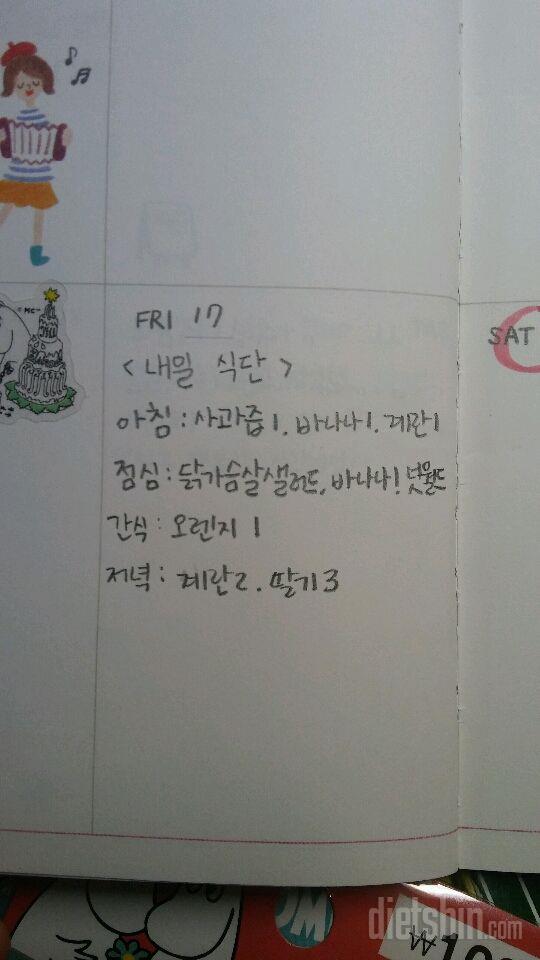 FRI 17
< 내일 식단 >
아침 : 사과즙 1. 바나나 1. 계란 1
점심 : 닭가슴살샐러드, 바나나 1 넛월드
간식 : 오렌지 1
저녁 : 계란 2. 딸기 3
SAT
dietshin.com